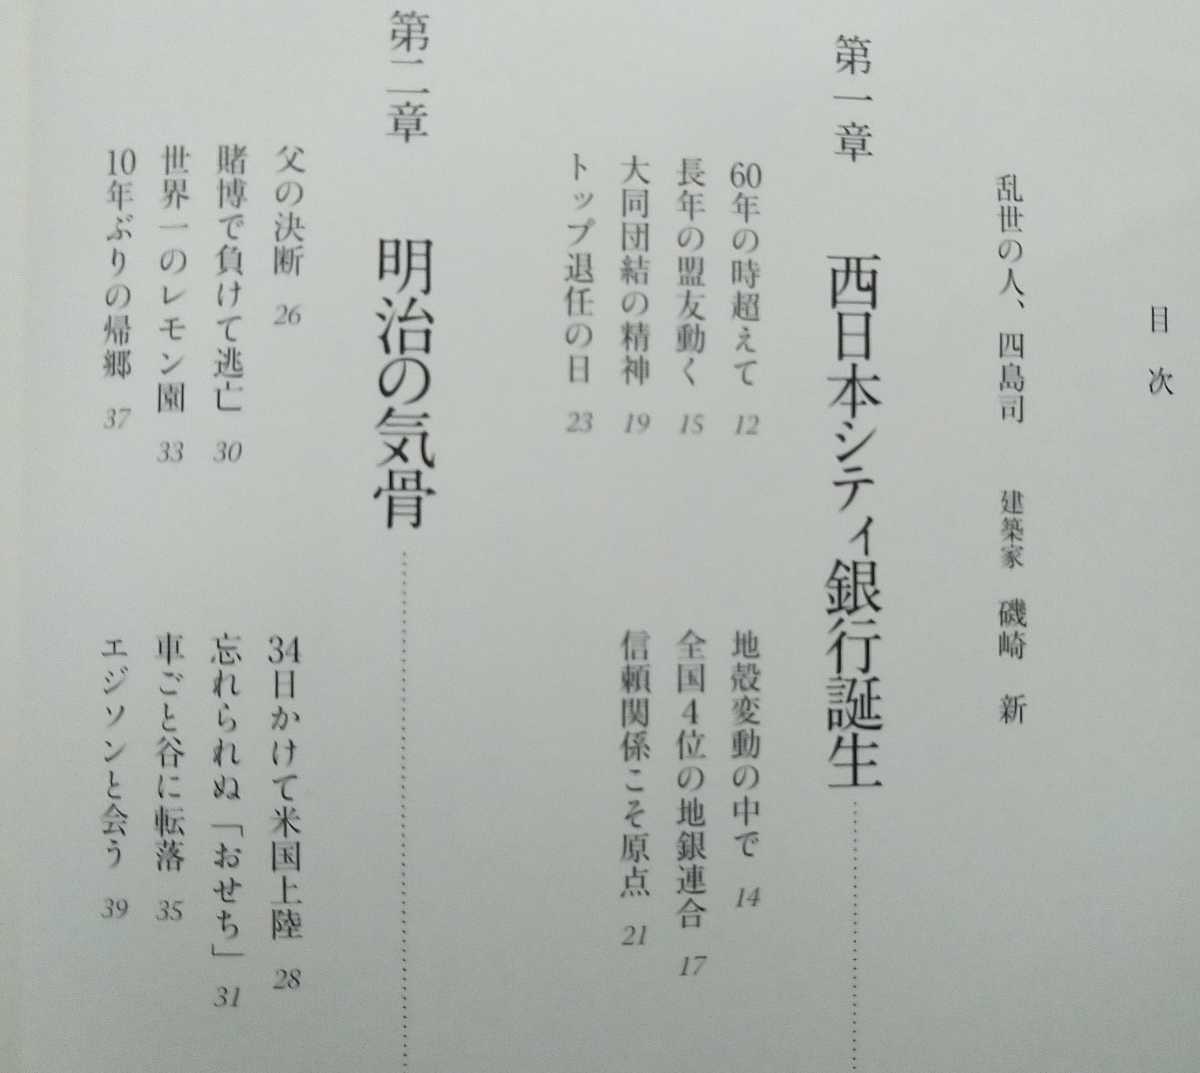 目次
乱世の人、四島司 建築家 磯崎 新
第一章 西日本シティ銀行誕生
60年の時超えて 12
地殻変動の中で 14
長年の盟友動く 15
全国4位の地銀連合 17
大同団結の精神 19
信頼関係こそ原点 21
トップ退任の日 23
第二章 明治の気骨
父の決断 26
34日かけて米国上陸 28
賭博で負けて逃亡 30
忘れられぬ「おせち」 31
世界一のレモン園 33
車ごと谷に転落 35
10年ぶりの帰郷 37
エジソンと会う 39